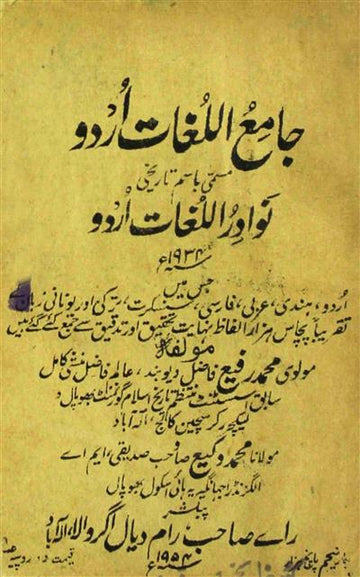 جامع اللُغات اُردو
مسمّی باسم تاریخی
نوادِرُ اللُغات اُردو
۱۹۳۴ء
جس میں
اُردو، ہندی، عربی، فارسی، سنسکرت، ترکی اور یونانی زبان کے
تقریباً پچاس ہزار الفاظ نہایت تحقیق اور تدقیق سے جمع کئے گئے ہیں
مولفہ
مولوی محمد رفیع فاضل دیوبند، عالم فاضل منشی کامل
سابق اسسٹنٹ منتظم تاریخ اسلام گورنمنٹ بھوپال و
لیکچرر کرسچین کالج، الہ آباد
و
مولانا محمد وکیع صاحب صدیقی، ایم اے
الگزنڈرا جہانگیریہ ہائی اسکول بھوپال
پبلشر
رائے صاحب رام دیال اگروالا، الہ آباد
۱۹۵۴ء
قیمت ۱۵ روپیہ